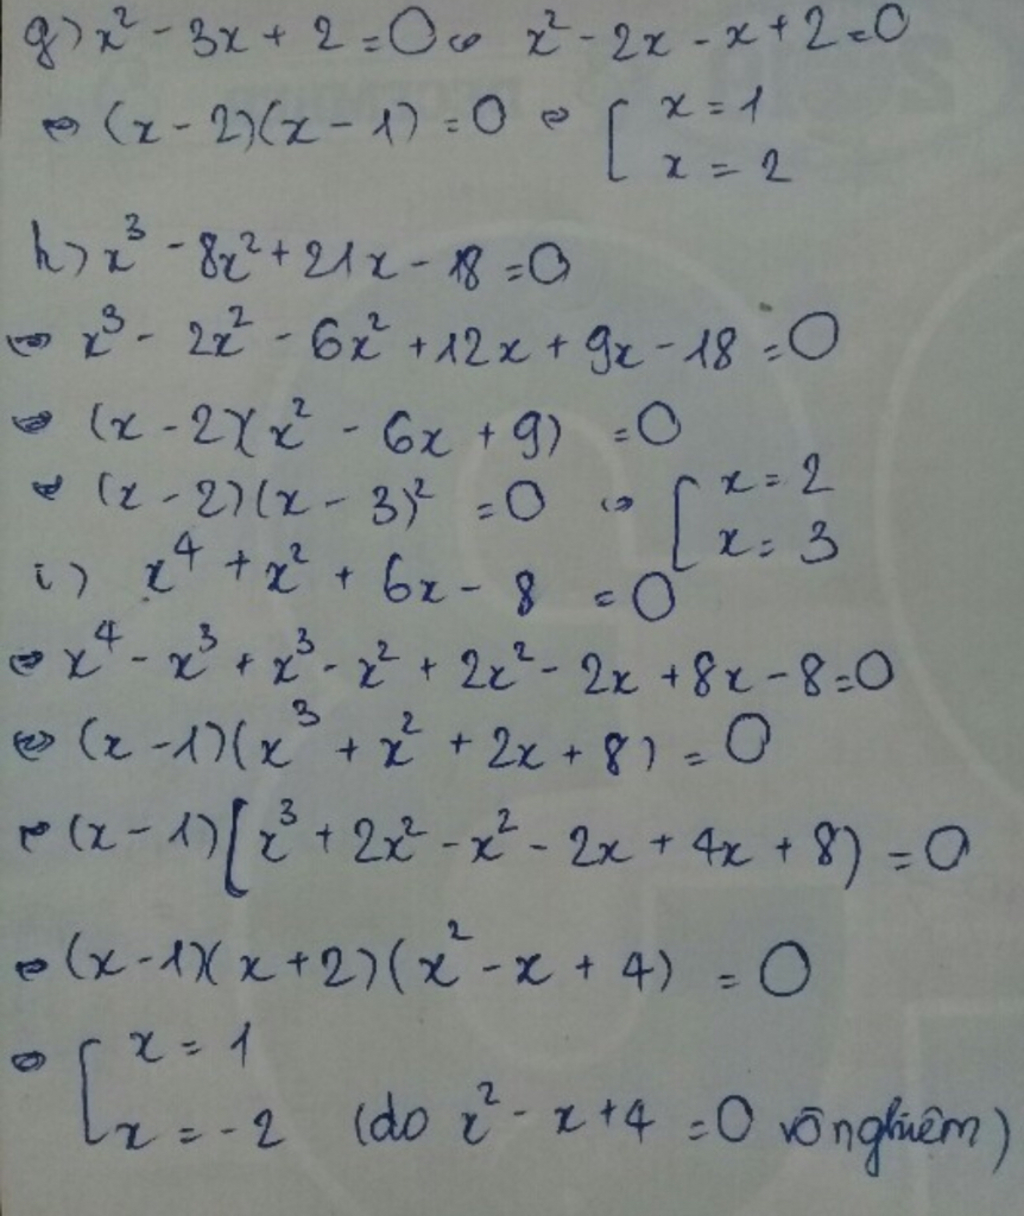 g) x² - 3x + 2 = 0 ⇔ x² - 2x - x + 2 = 0
⇔ (x - 2)(x - 1) = 0 ⇔ [ x = 1
x = 2
h) x³ - 8x² + 21x - 18 = 0
⇔ x³ - 2x² - 6x² + 12x + 9x - 18 = 0
⇔ (x - 2)(x² - 6x + 9) = 0
⇔ (x - 2)(x - 3)² = 0 ⇔ [ x = 2
x = 3
i) x⁴ + x² + 6x - 8 = 0
⇔ x⁴ - x³ + x³ - x² + 2x² - 2x + 8x - 8 = 0
⇔ (x - 1)(x³ + x² + 2x + 8) = 0
⇔ (x - 1)[x³ + 2x² - x² - 2x + 4x + 8) = 0
⇔ (x - 1)(x + 2)(x² - x + 4) = 0
⇔ [ x = 1
x = -2 (do x² - x + 4 = 0 vô nghiêm)